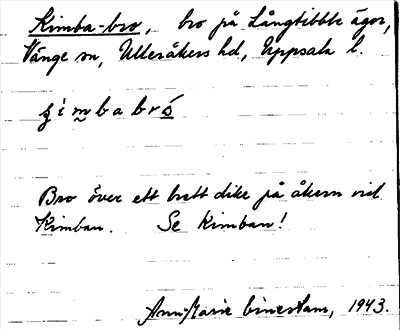 Kimba-bro, bro på Långtibble ägor,
Vänge sn, Ulleråkers hd, Uppsala l.
Bro över ett brett dike på åkern vid
Kimban. Se Kimban!
Ann-Marie 1943.